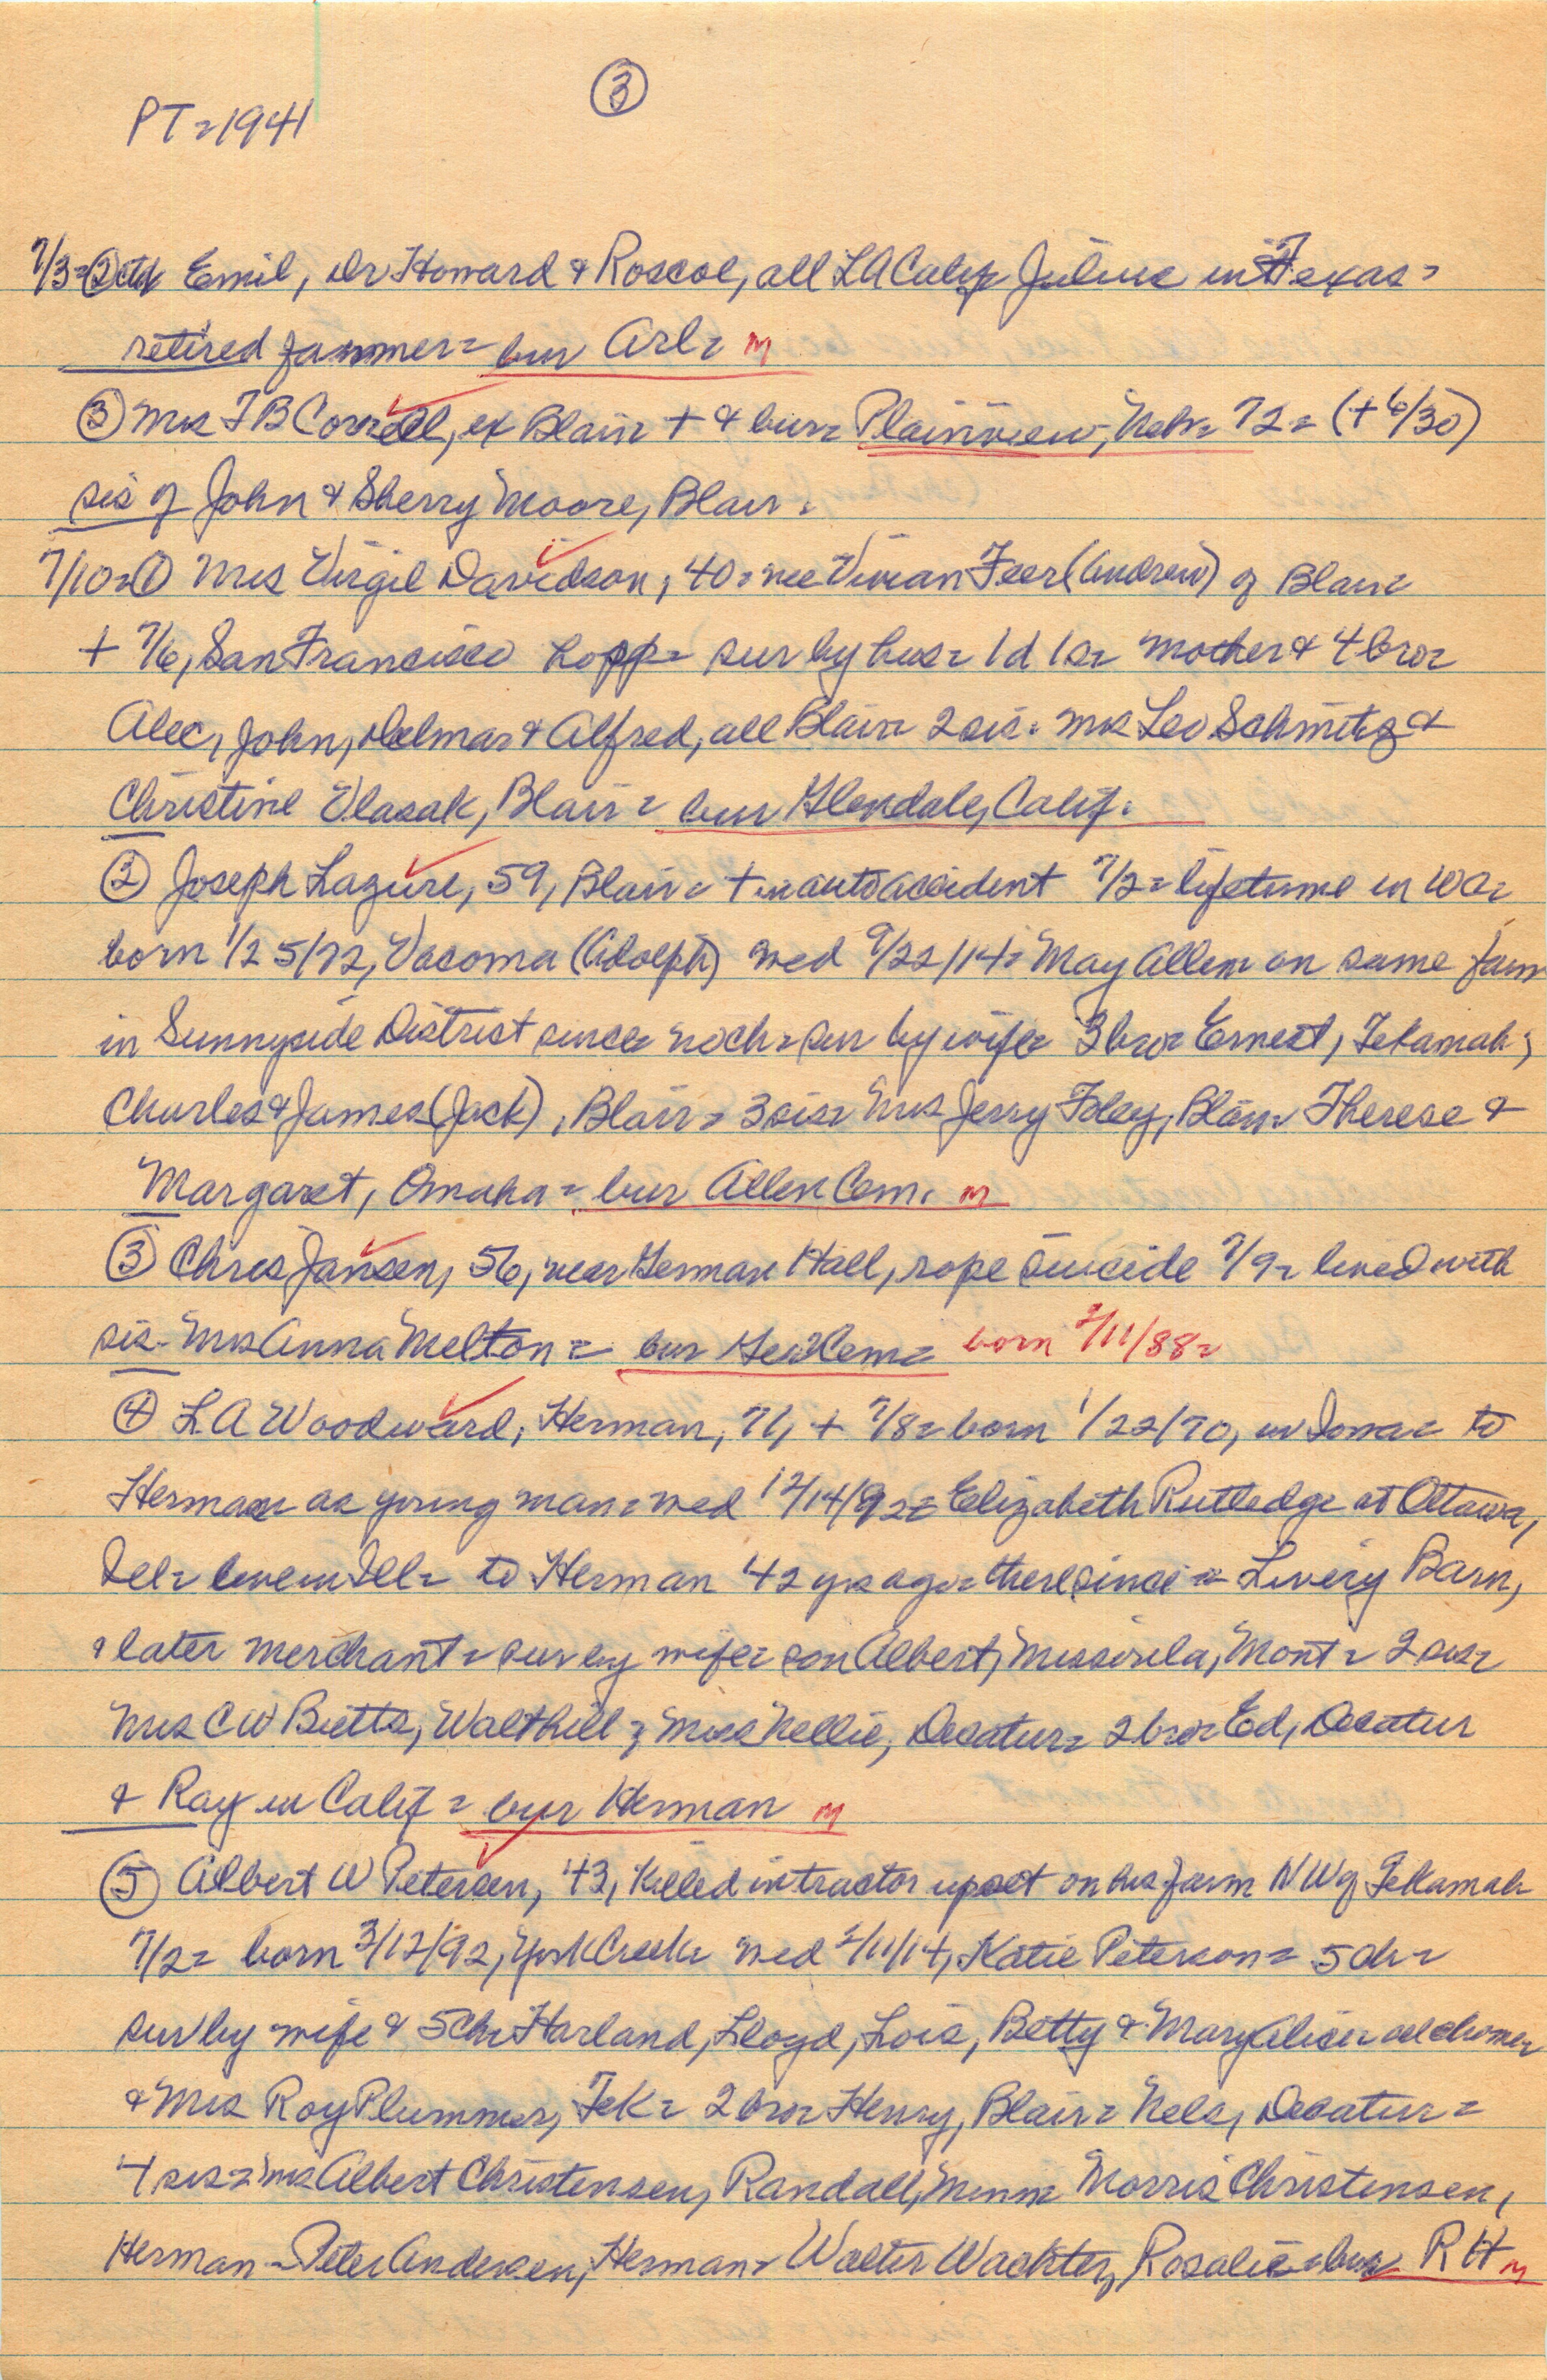 ③
PT=1941
7/3=② ctd Emil, Dr Howard & Roscoe, all LA Calif Julius in Texas=
retired farmmer= bur Arl= M
③ Mrs F B Correll, ex Blair + & bur= Plainview, Nebr= 72= (+6/30)
sis of John & Sherry Moore, Blair=
7/10=① Mrs Virgil Davidson, 40= nee Vivian Feer (Andrew) of Blair=
+ 7/6, San Francisco hosp= sur by hus= 1d 1s= mother & 4 bro=
Alec, John, Delmar & Alfred, all Blair= 2 sis= Mrs Leo Schmitz &
Christine Vlasak, Blair= bur Glendale, Calif.
② Joseph Lazure, 59, Blair= + in auto accident 7/2= lifetime in WC=
born 1/25/82, Vacoma (Adolph) wed 9/22/14= May Allen= on same farm
in Sunnyside District since= no ch= sur by wife= 3 bro= Ernest, Tekamah;
Charles & James (Jack), Blair= 3 sis= Mrs Jerry Foley, Blair= Therese &
Margaret, Omaha= bur Allen Cem. M
③ Chris Jansen, 56, near German Hall, rope suicide 7/9= lived with
sis- Mrs Anna Melton= bur Cem= born 2/11/88=
④ L A Woodward, Herman, 71, + 7/8= born 1/22/70, in Iowa= to
Herman as young man= wed 12/14/92= Elizabeth Rutledge at Ottawa,
Ill= live in Ill= to Herman 42 yrs ago= there since= Livery Barn,
& later merchant= sur by wife= son Albert, Missoula, Mont= 2 sis=
Mrs C W Betts, Walthill; Miss Nellie, Decatur= 2 bro= Ed, Decatur
& Ray in Calif= bur Herman M
⑤ Albert W Petersen, 43, killed in tractor upset on his farm NW of Tekamah
7/2= born 3/12/92, York Creek= wed 2/11/14, Katie Peterson= 5 ch=
sur by wife & 5 ch= Harland, Lloyd, Lois, Betty & Mary Alice= all @ home=
& Mrs Roy Plummer, Tek= 2 bro= Henry, Blair= Nels, Decatur=
4 sis= Mrs Albert Christensen, Randall, Minn= Morris Christensen,
Herman= Peter Andersen, Herman= Walter Wachter, Rosalie= bur RH M